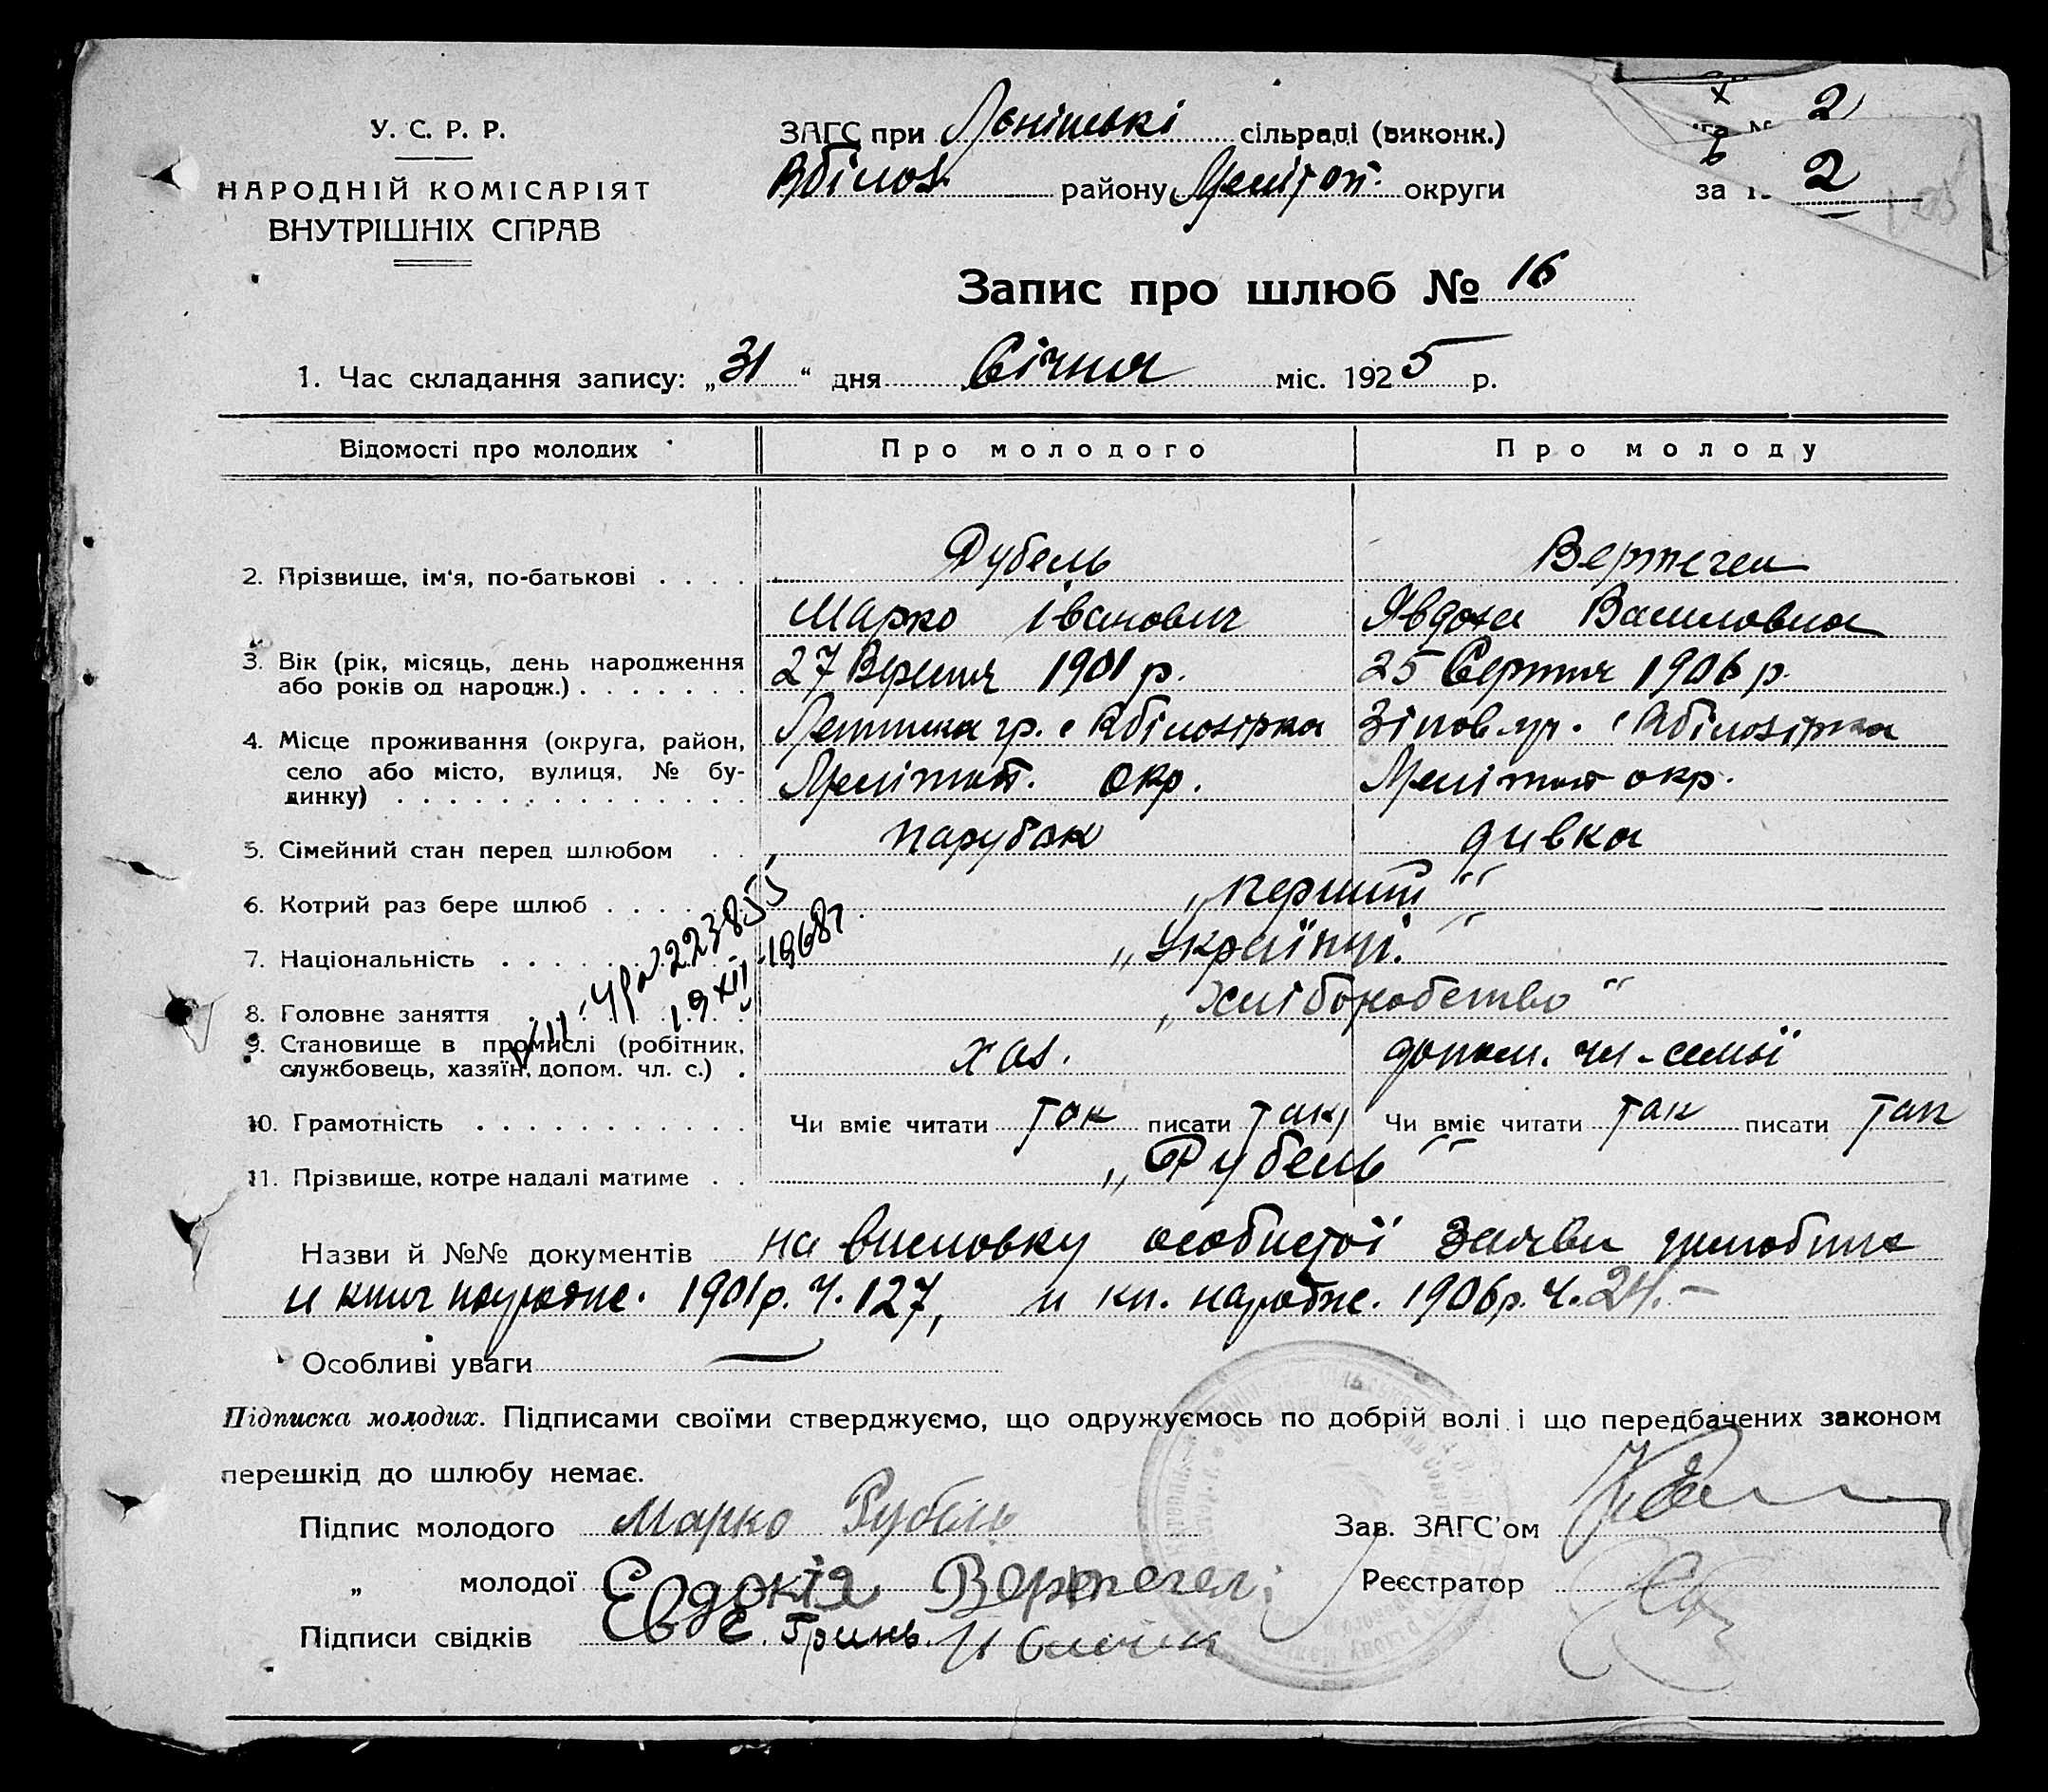 У. С. Р. Р.
НАРОДНІЙ КОМІСАРІЯТ
ВНУТРІШНІХ СПРАВ
ЗАГС при сільраді (виконк.)
Вбілоз. району Меліtоп. округи
2
за 2
Запис про шлюб № 16
1. Час складання запису: „31“ дня Січня міс. 1925 р.
Відомості про молодих Про молодого Про молоду
2. Прізвище, ім'я, по-батькові . . . . Рубель Вертегел
Марко Іванович Явдоха Василовна
3. Вік (рік, місяць, день народження
або років од народж.) . . . . . . . 27 Вересня 1901 р. 25 Серпня 1906 р.
4. Місце проживання (округа, район,
гр. с Вбілозірка с Вбілозірка
село або місто, вулиця, № бу-
динку) . . . . . . . . . . . . . . Мелітоп. окр. Мелітоп окр.
5. Сімейний стан перед шлюбом . . парубок дивка
6. Котрий раз бере шлюб . . . . . „перший“
7. Національність . . . . „Українці.“
8. Головне заняття „хліборобство“
9. Становище в промислі (робітник,
службовець, хазяїн, допом. чл. с.) . хаз. допом. чл-семьї
№ 223855
19 XII-1968г.
10. Грамотність . . . . . . . . . . . . Чи вміє читати так писати так, Чи вміє читати так писати так
11. Прізвище, котре надалі матиме . . „Рубель“
Назви й №№ документів на висновку особистої заяви
и книг народж. 1901р. Ч. 127, и кн. народж. 1906р. Ч. 24.-
Особливі уваги —
Підписка молодих. Підписами своїми стверджуємо, що одружуємось по добрій волі і що передбачених законом
перешкід до шлюбу немає.
Підпис молодого Марко Рубель Зав. ЗАГС'ом
„ молодої Евдокія Вертегел Реєстратор
Підписи свідків Є. Гринь.